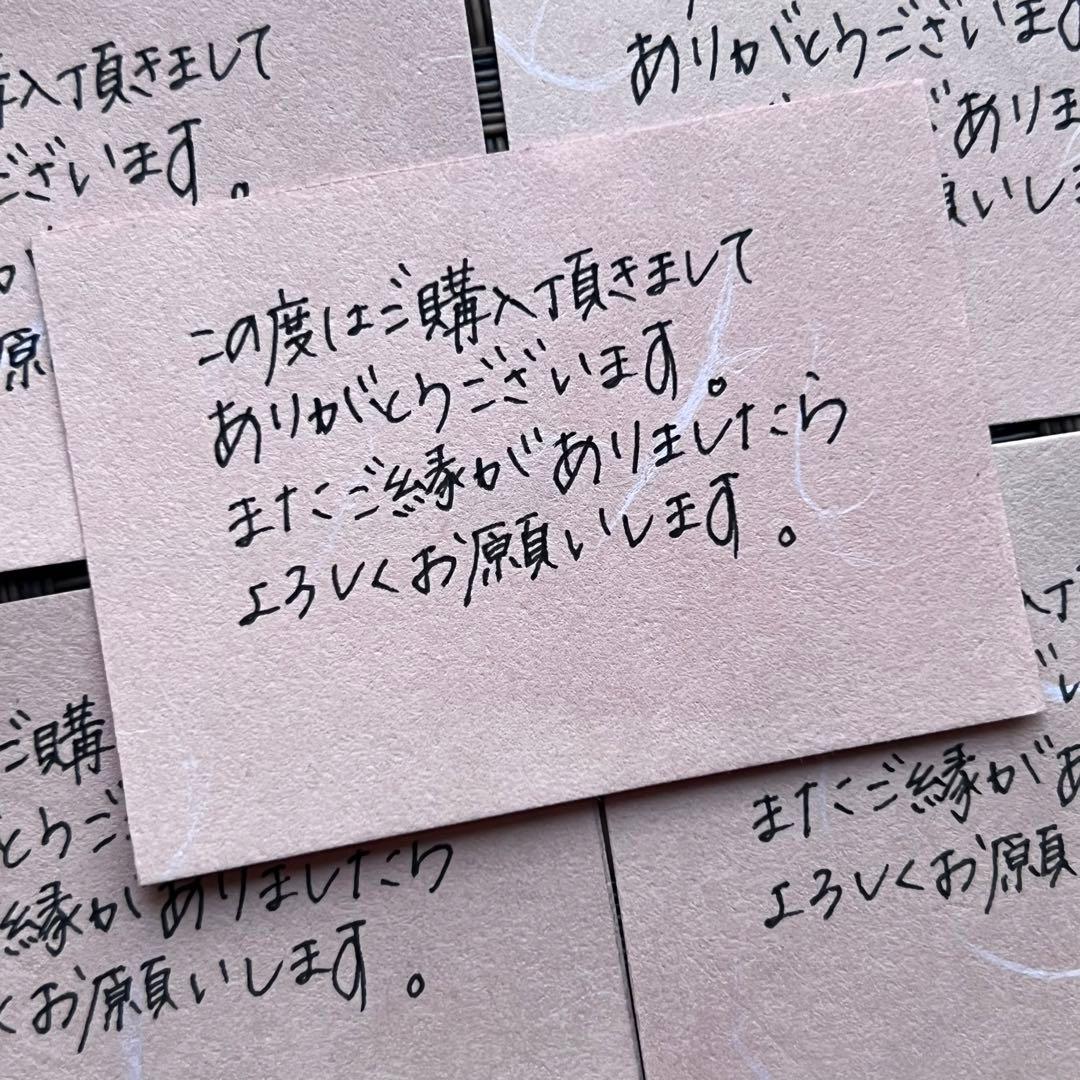 購入頂きまして
ございます。
願
ありがとうございます
ありま
願いしま
この度はご購入頂きまして
ありがとうございます。
またご縁がありましたら
よろしくお願いします。
ご購
とうご
縁がありましたら
くお願いします。
またご縁があ
よろしくお願